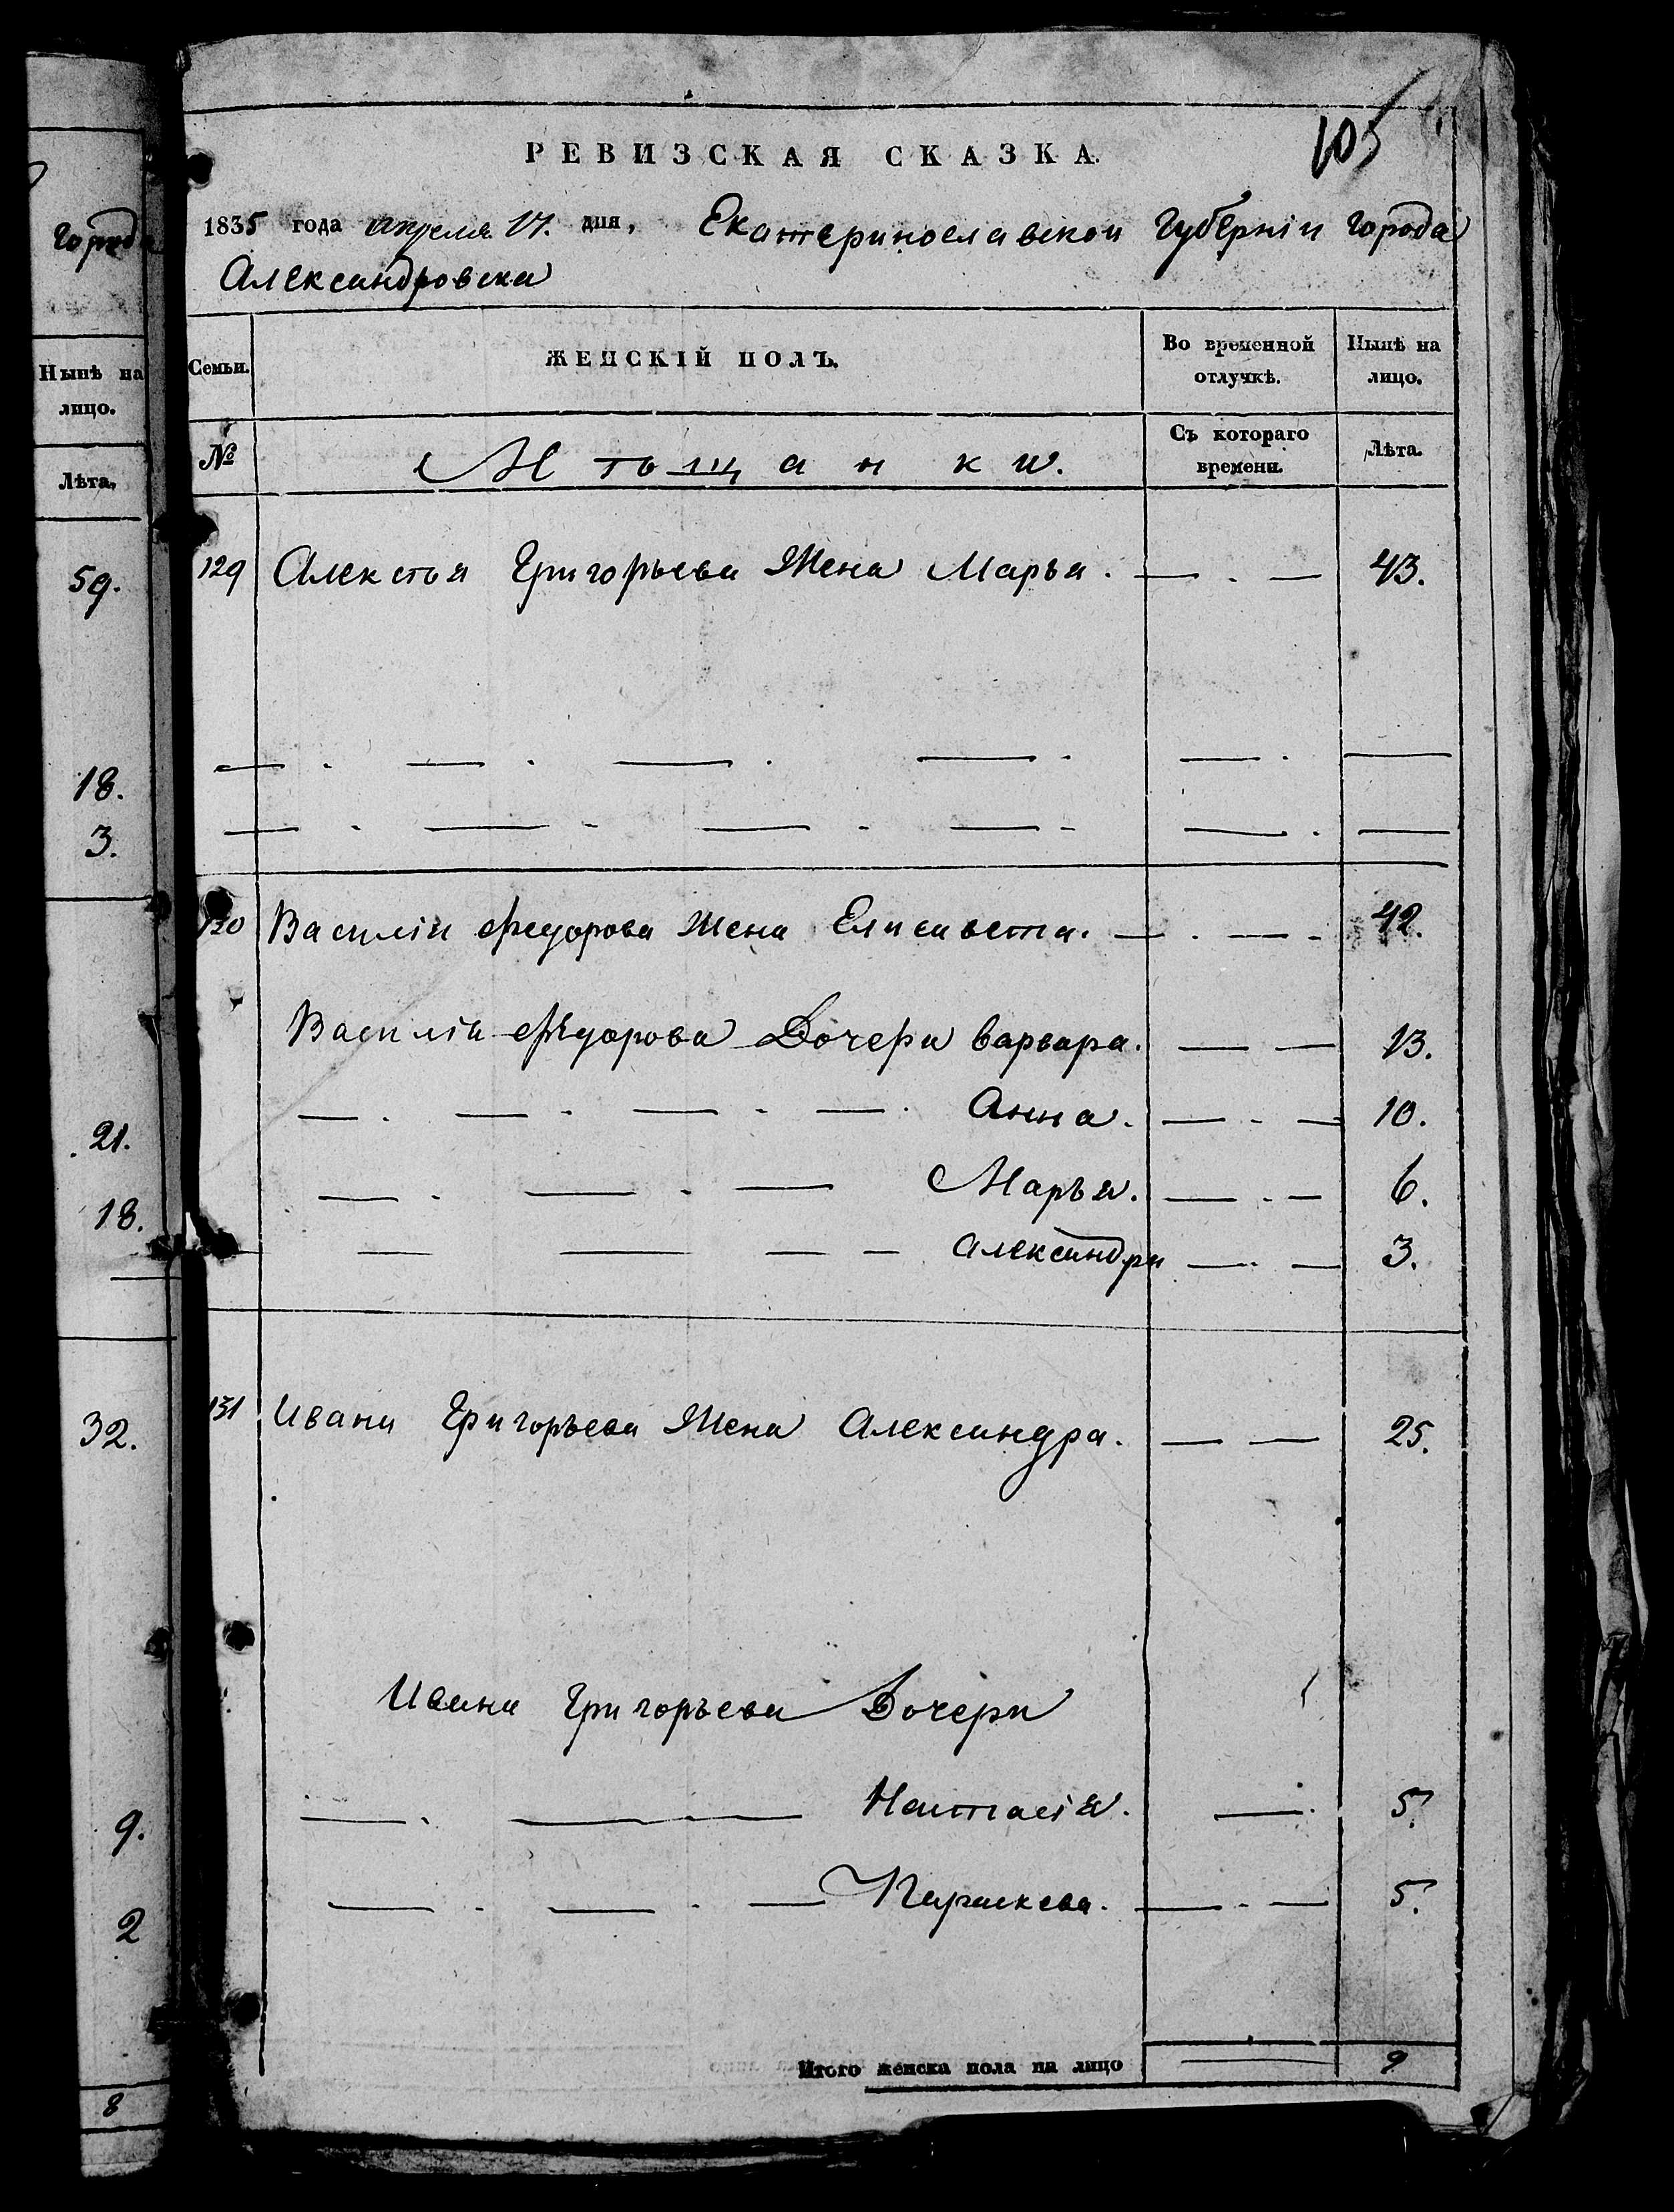 105
РЕВИЗСКАЯ СКАЗКА.
1835 года апреля 17. дня, Екатеринославской Губерніи города
Александровска
города
Семьи. ЖЕНСКІЙ ПОЛЪ. Во временной отлучкѣ. Нынѣ на лицо.
Нынѣ на лицо.
№ Мѣщанки. Съ котораго времени. Лѣта.
Лѣта.
129 Алексѣя Григорьева Жена Марья. 43.
59.
18.
3.
130 Василія Федорова Жена Елисавета. 42.
Василія Федорова Дочери Варвара. 13.
Анна. 10.
21.
Марья. 6.
18.
Александра 3.
131 Ивана Григорьева Жена Александра. 25.
32.
Ивана Григорьева Дочери
Настасія. 5.
9.
Параскева. 5.
2
Итого женска пола на лицо 9
8